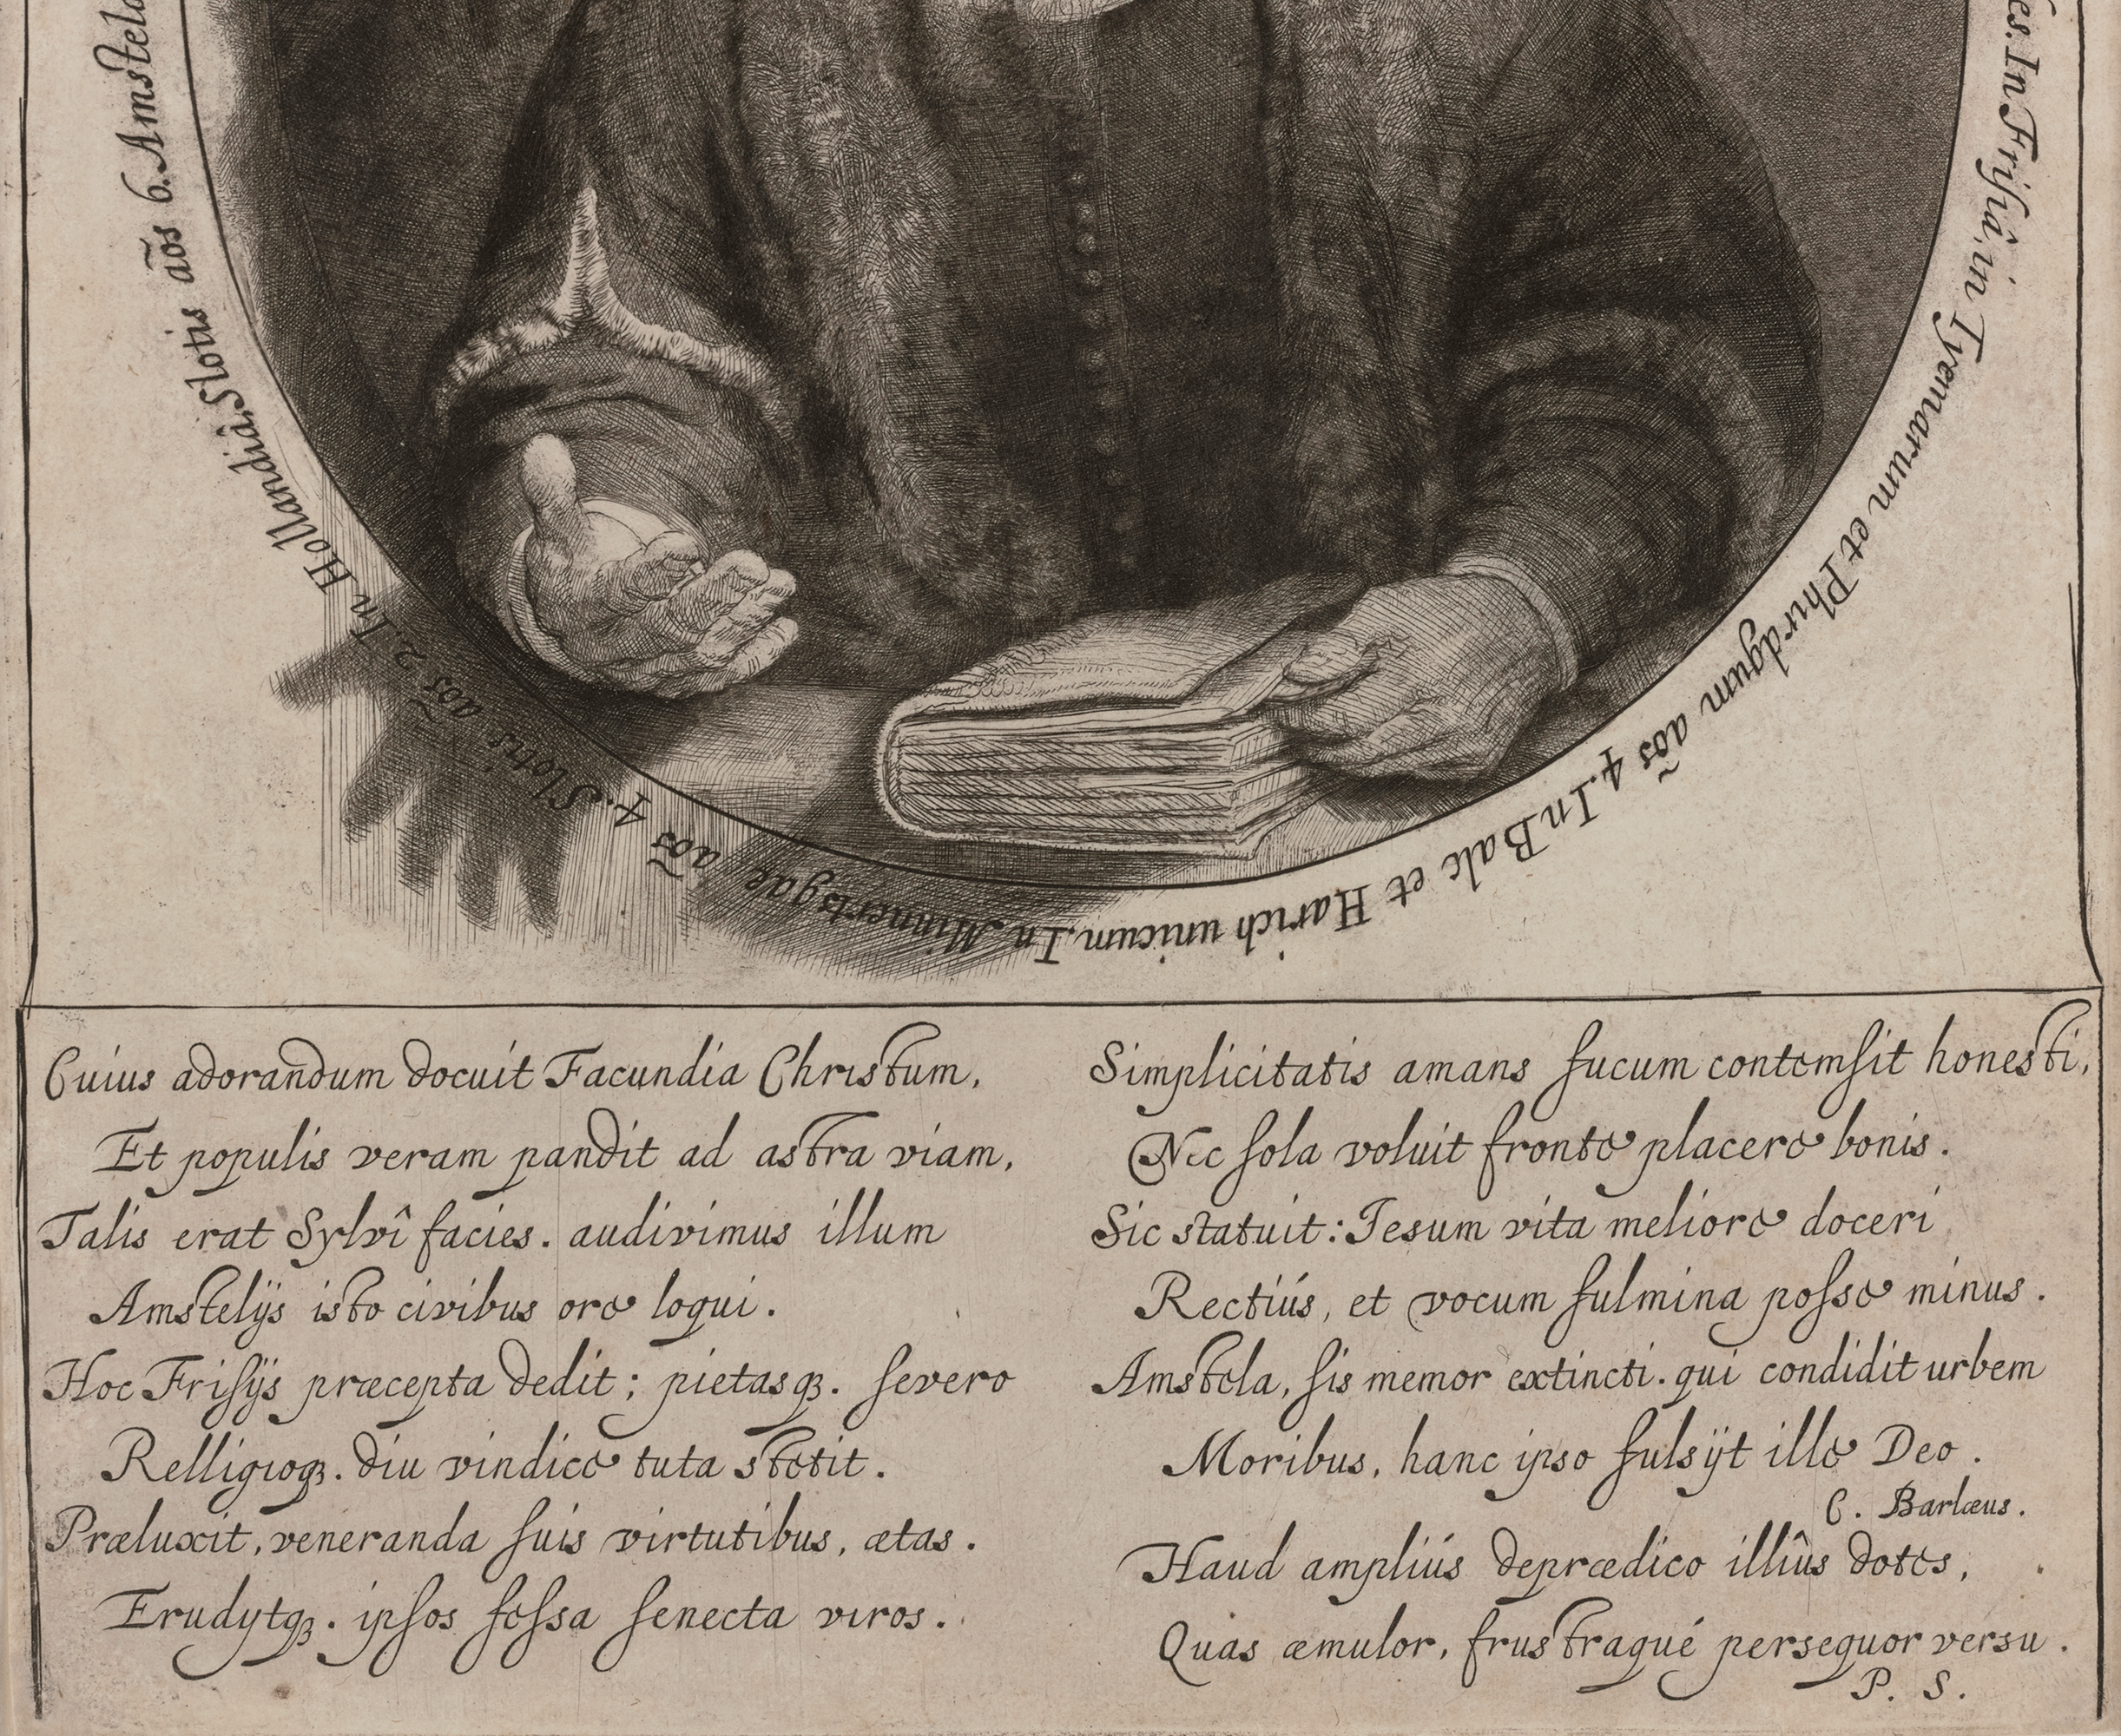 In Frisiâ, in Tyemarum et Phirdgum aõs 4. In Balc et Harich unicum. In Minnertsgae aõs 4. Slotis aõs 2. In Hollandiâ, Slotis aõs 6. Amstela
Cuius adorandum docuit Facundia Christum,
Et populis veram pandit ad astra viam,
Talis erat Sylvî facies. audivimus illum
Amstelijs isto civibus ore loqui.
Hoc Frisijs præcepta dedit; pietasq3. severo
Relligioq3. diu vindice tuta stetit.
Præluxit, veneranda suis virtutibus, ætas.
Erudytq3. ipsos fessa senecta viros.
Simplicitatis amans fucum contemsit honesti,
Nec sola voluit fronte placere bonis.
Sic statuit: Jesum vita meliore doceri
Rectiús, et vocum fulmina posse minus.
Amstela, sis memor extincti. qui condidit urbem
Moribus, hanc ipso fulsijt ille Deo.
C. Barlæus.
Haud ampliús deprædico illîus dotes,
Quas æmulor, frustraqué persequor versu.
P. S.